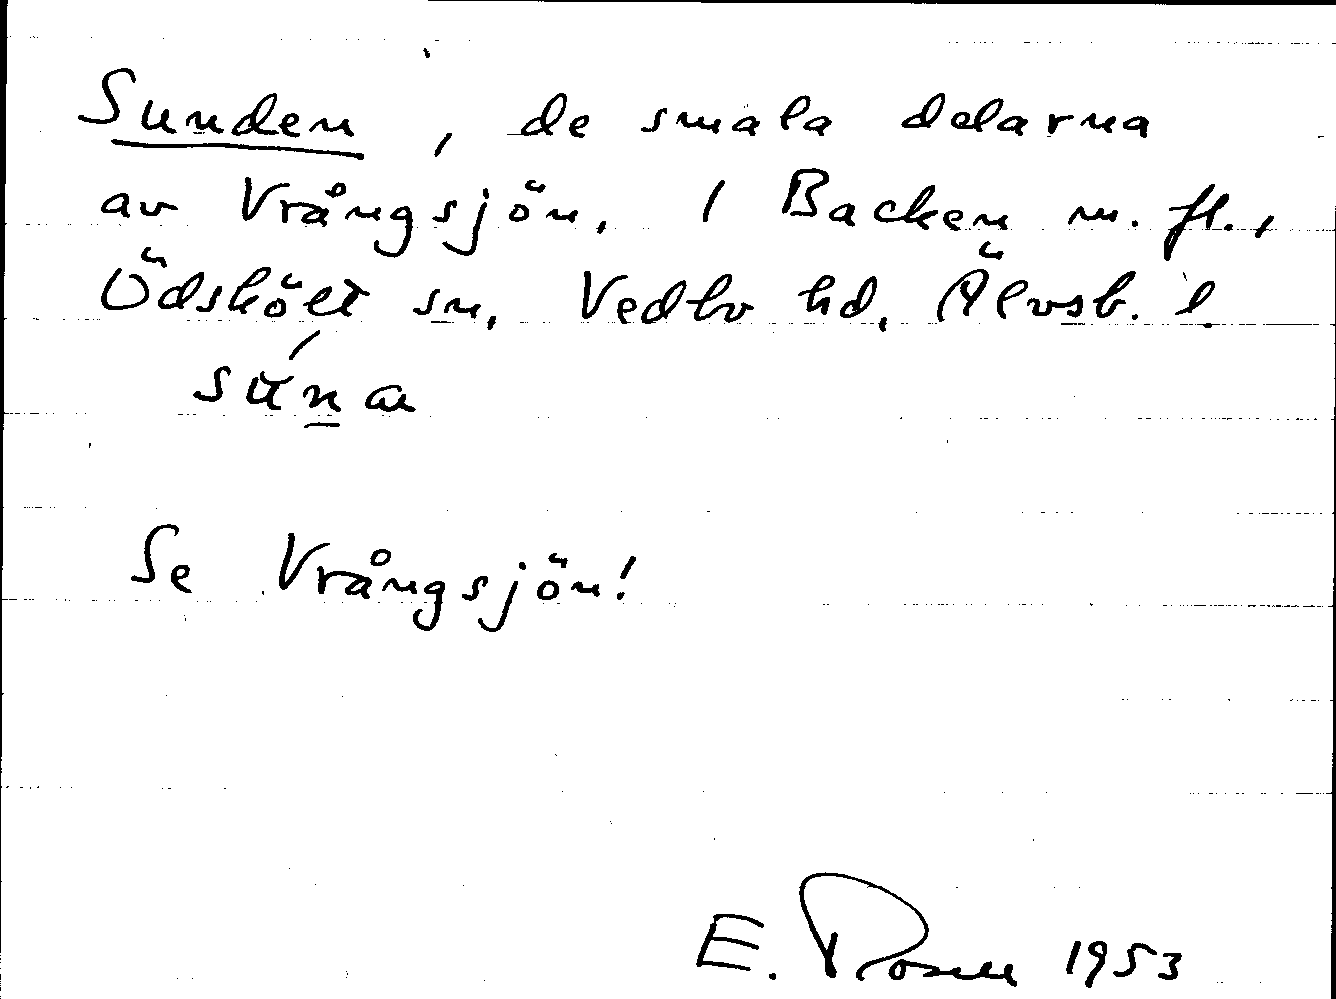 Sunden, de smala delarna
av Vrångsjön, / Backen m. fl.,
Ödskölt sn, Vedbo hd, Älvsb. l
Se Vrångsjön!
E. Rosell 1953